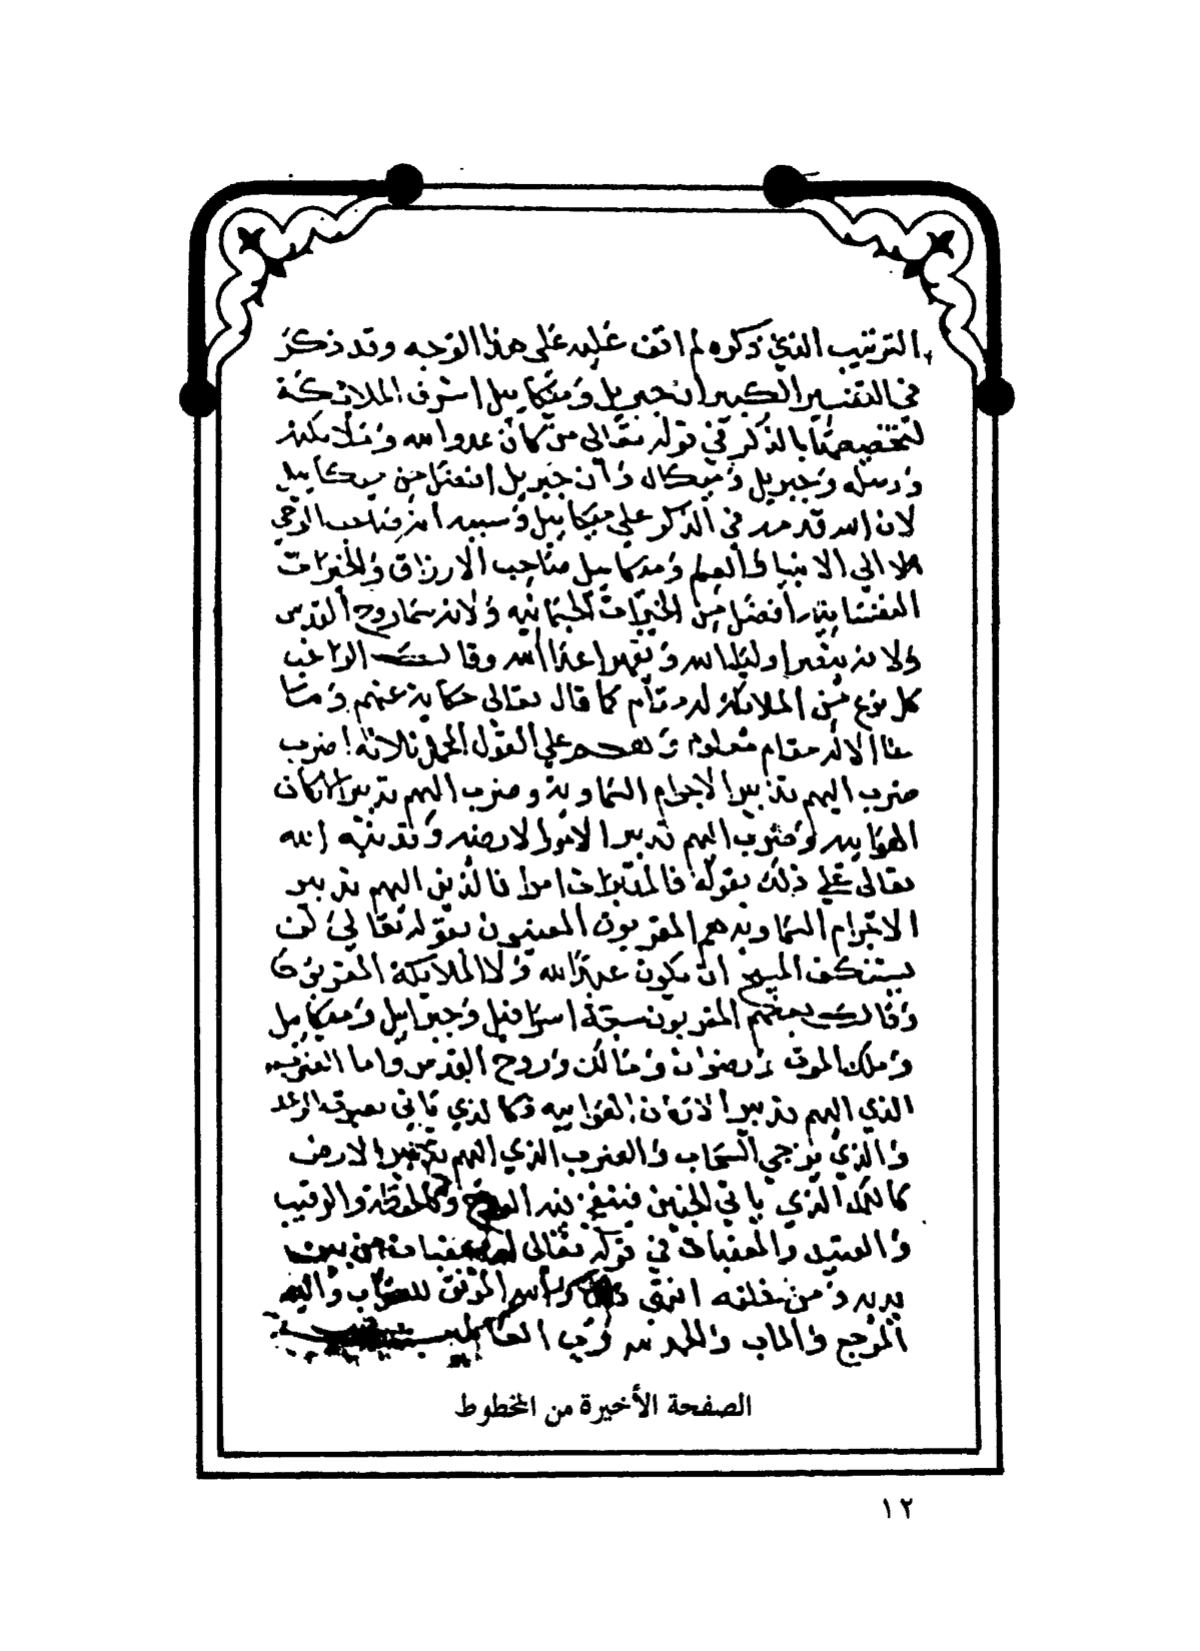 الترتيب الذي ذكره لم اقف عليه على هذا الوجه وقد ذكر
في التفسير الكبير ان جبريل وميكاييل اشرف الملائكة
لتخصيصهما بالذكر في قوله تعالى من كان عدوا لله وملائكته
ورسله وجبريل وميكال وان جبريل افضل من ميكاييل
لان الله قدمه في الذكر على ميكاييل وسببه انه صاحب الوحي
الى الانبيا والعلم وميكاييل صاحب الارزاق والخيرات
النفسانية افضل من الخيرات الجسمانية ولانه سماه روح القدس
ولانه ينصر اولياء الله ويقهر اعداالله وقال الراغب
كل نوع من الملائكة له مقام كما قال تعالى حكاية عنهم وما
منا الا له مقام معلوم على القول المجمل ثلاثة اضرب
ضرب اليهم تدبير الاجرام السماوية وضرب اليهم تدبير الاركان
الهوايية وضرب اليهم تدبير الارضية وقد نبه الله
تعالى على ذلك بقوله فالمدبرات امرا فالذين اليهم تدبير
الاجرام السماوية هم المقربون المعنيون بقوله تعالى لن
يستنكف المسيح ان يكون عبدا لله ولا الملايكة المقربون
وقال بعضهم المقربون سبعة اسرافيل وجبرايل وميكاييل
وملك الموت ورضوان ومالك وروح القدس واما الضرب
الذي اليهم تدبير الاركان الهوايية فكالذي ياتي بصوت الرعد
والذي يزجي السحاب والضرب الذي اليهم تدبير الارض
كالملك الذي ياتي الجنين فينفخ فيه الروح وكالحفظة والرقيب
والعتيد والمعقبات في قوله تعالى له معقبات من بين
يديه ومن خلفه انتهى والله الموفق للصواب واليه
المرجع والماب والحمد لله رب العالمين
الصفحة الأخيرة من المخطوط
١٢